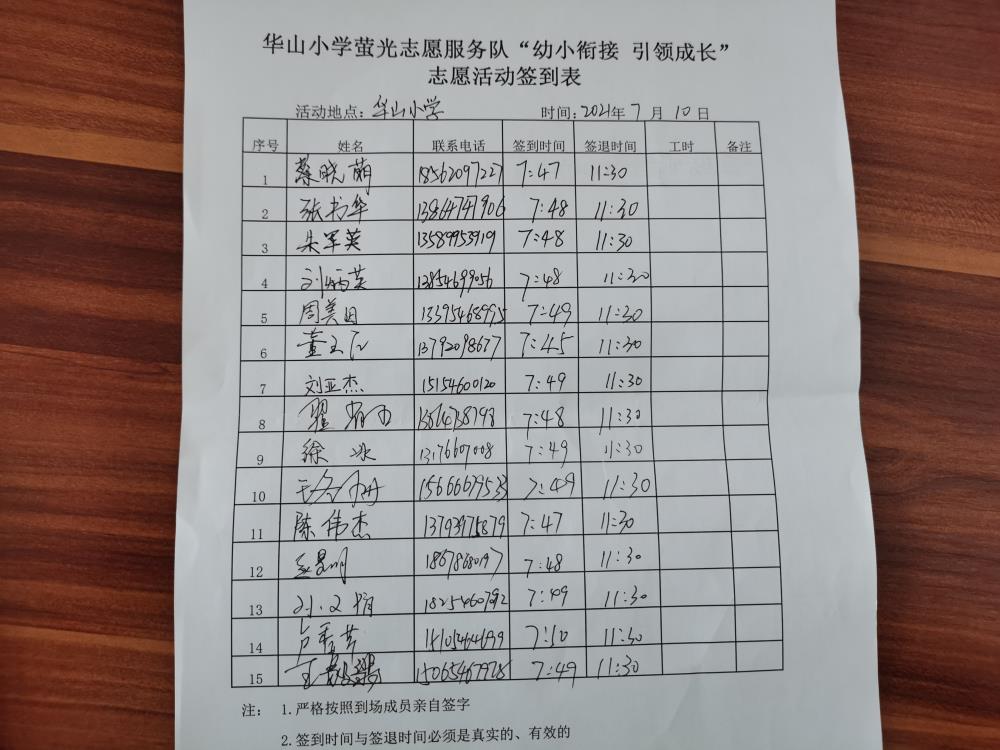 华山小学萤光志愿服务队“幼小衔接 引领成长”
志愿活动签到表
活动地点：华山小学 时间：2021年7月10日
序号 姓名 联系电话 签到时间 签退时间 工时 备注
1 蔡晓萌 18562097227 7:47 11:30
2 张书华 13864741906 7:48 11:30
3 朱军英 13589953919 7:48 11:30
4 刘炳英 13854699056 7:48 11:30
5 周美田 13395468995 7:49 11:30
6 董玉 13792098677 7:45 11:30
7 刘亚杰 15154600120 7:49 11:30
8 翟 7:48 11:30
9 徐冰 13176607008 7:49 11:30
10 15666679533 7:49 11:30
11 陈伟杰 13793975879 7:47 11:30
12 18678680197 7:48 11:30
13 刘文娟 1825460792 7:49 11:30
14 7:50 11:30
15 王 15065467928 7:49 11:30
注： 1.严格按照到场成员亲自签字
2.签到时间与签退时间必须是真实的、有效的